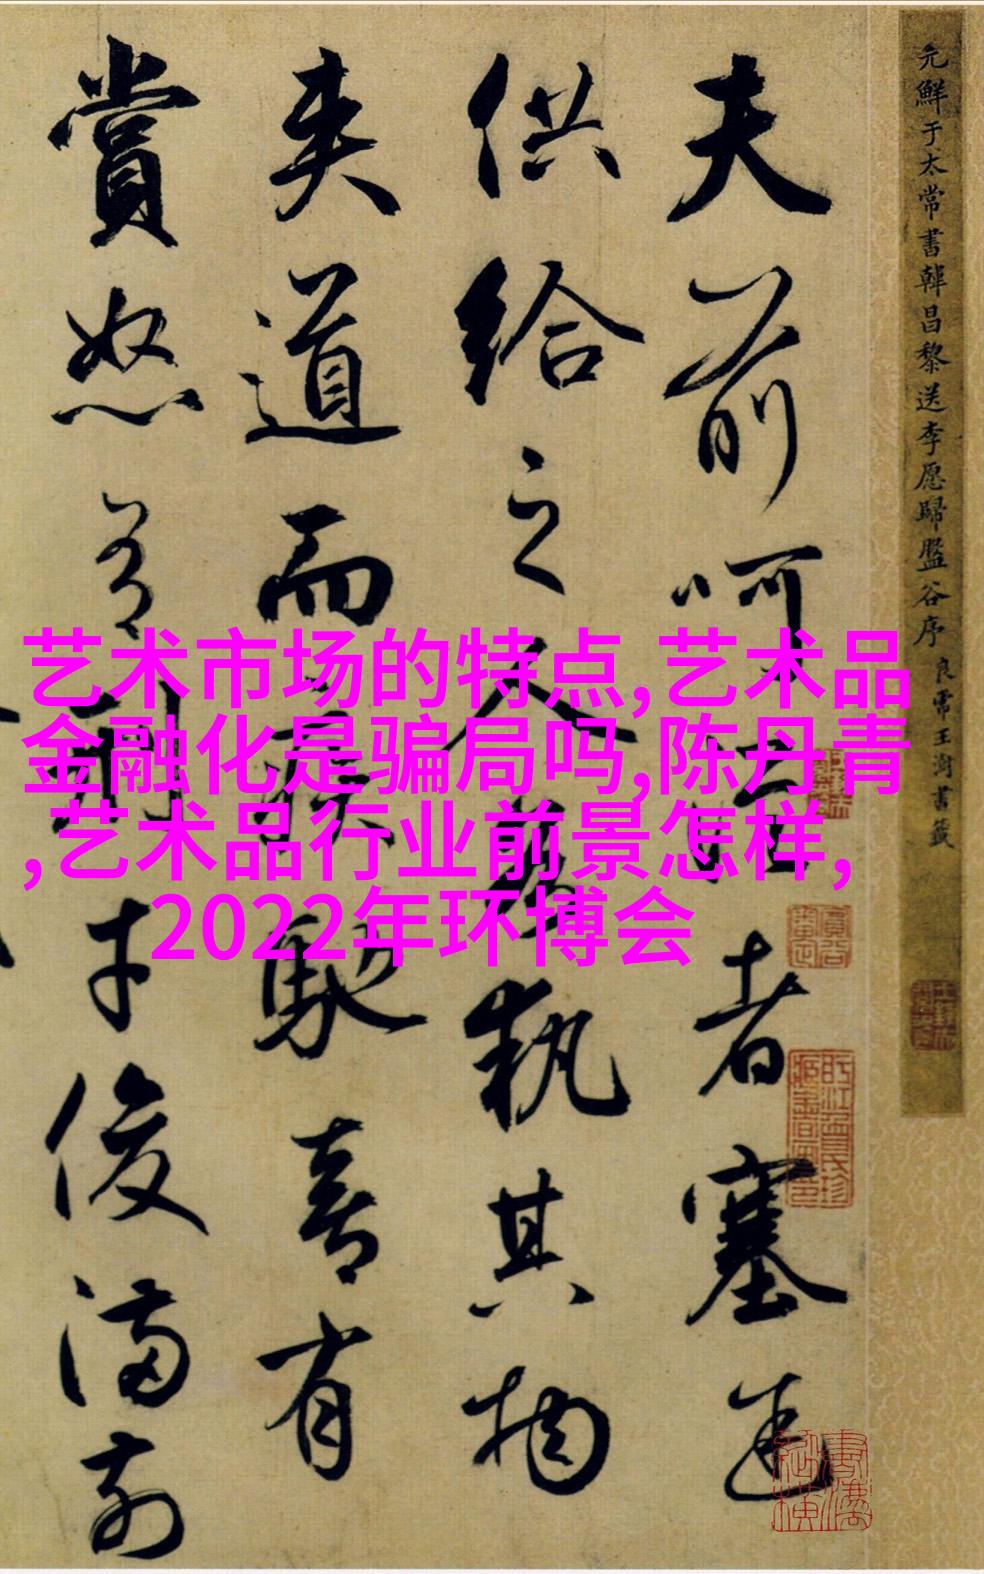 元鮮于太常書韓昌黎送李愿歸盤谷序 良常王澍書籤
夫前呵從者塞途
供給之人各執其物
夾道而疾馳喜有
賞怒有刑才俊滿前
艺术市场的特点,艺术品
金融化是骗局吗,陈丹青
,艺术品行业前景怎样,
2022年环博会